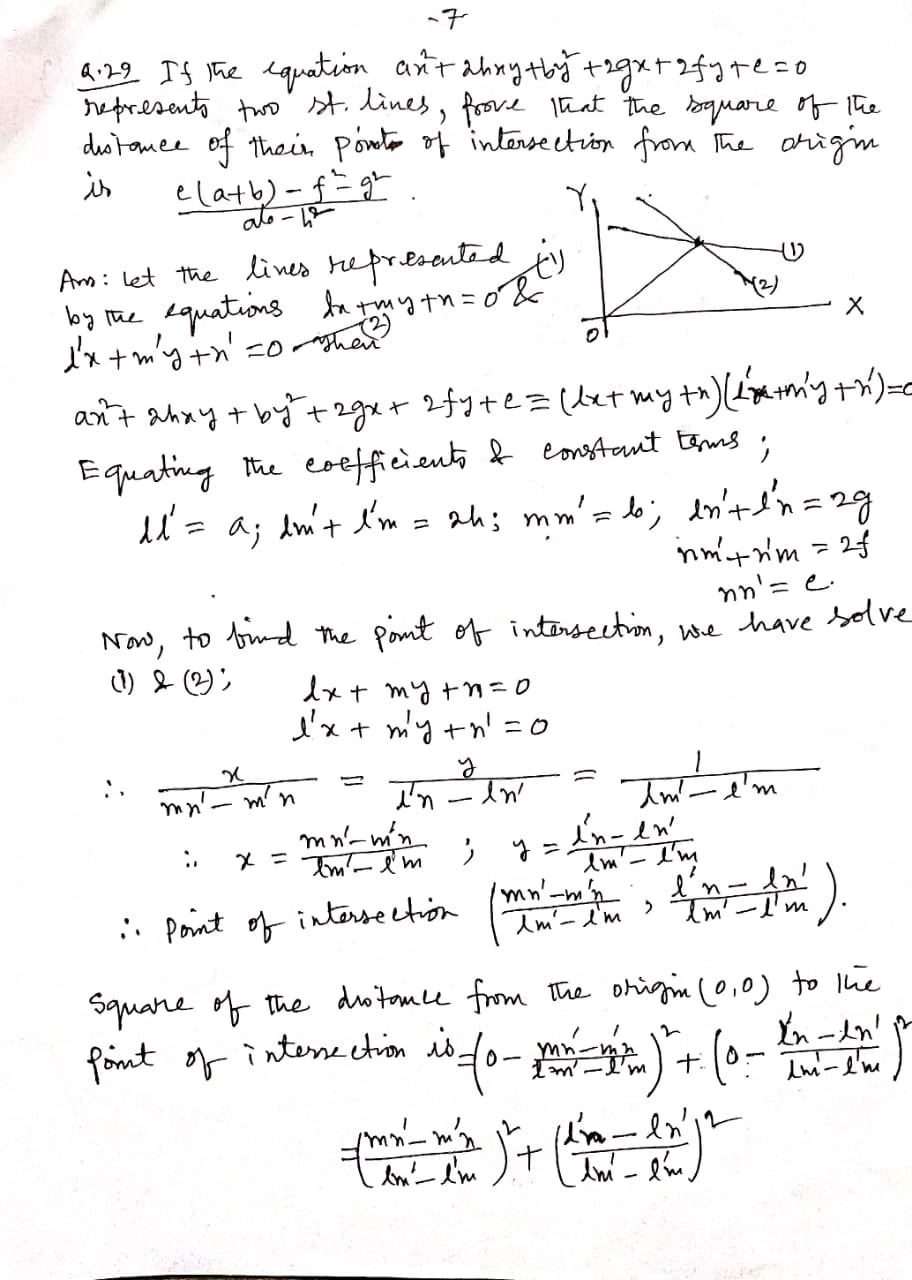 -7
Q.29 If the equation ax²+2hxy+by²+2gx+2fy+c=0
represents two st. lines, prove that the square of the
distance of their points of intersection from the origin
is c(a+b)-f²-g² / ab-h² .
Y
(1)
(2)
X
O
Ans: Let the lines represented
by the equations lx+my+n=0 (1) &
l'x+m'y+n'=0 (2) then
ax²+2hxy+by²+2gx+2fy+c≡(lx+my+n)(l'x+m'y+n')=0
Equating the coefficients & constant terms ;
ll' = a; lm'+l'm = 2h; mm' = b; ln'+l'n = 2g
nm'+n'm = 2f
nn' = c.
Now, to find the point of intersection, we have solve
(1) & (2);
lx+my+n=0
l'x+m'y+n'=0
∴ x / mn'-m'n = y / l'n-ln' = 1 / lm'-l'm
∴ x = mn'-m'n / lm'-l'm ; y = l'n-ln' / lm'-l'm
∴ point of intersection (mn'-m'n / lm'-l'm , l'n-ln' / lm'-l'm).
Square of the distance from the origin (0,0) to the
point of intersection is =(0- mn'-m'n / lm'-l'm)² + (0- l'n-ln' / lm'-l'm)²
=(mn'-m'n / lm'-l'm)² + (l'n-ln' / lm'-l'm)²